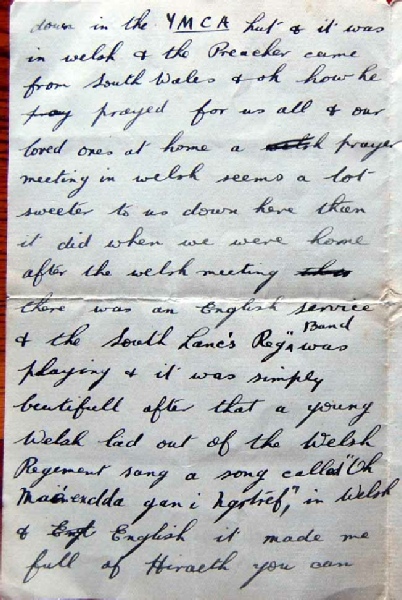 down in the YMCA hut & it was
in welsh & the Preacher came
from South Wales & oh how he
pray prayed for us all & our
loved ones at home a welsh prayer
meeting in welsh seems a lot
sweeter to us down here then
it did when we were home
after the welsh meeting
there was an English service
& the South Lanc's Reg" Band was
playing & it was simply
beutifull after that a young
Welsh lad out of the Welsh
Regement sang a song called "Oh
gan i Ngotref," in Welsh
& English it made me
full of Hiraeth you can